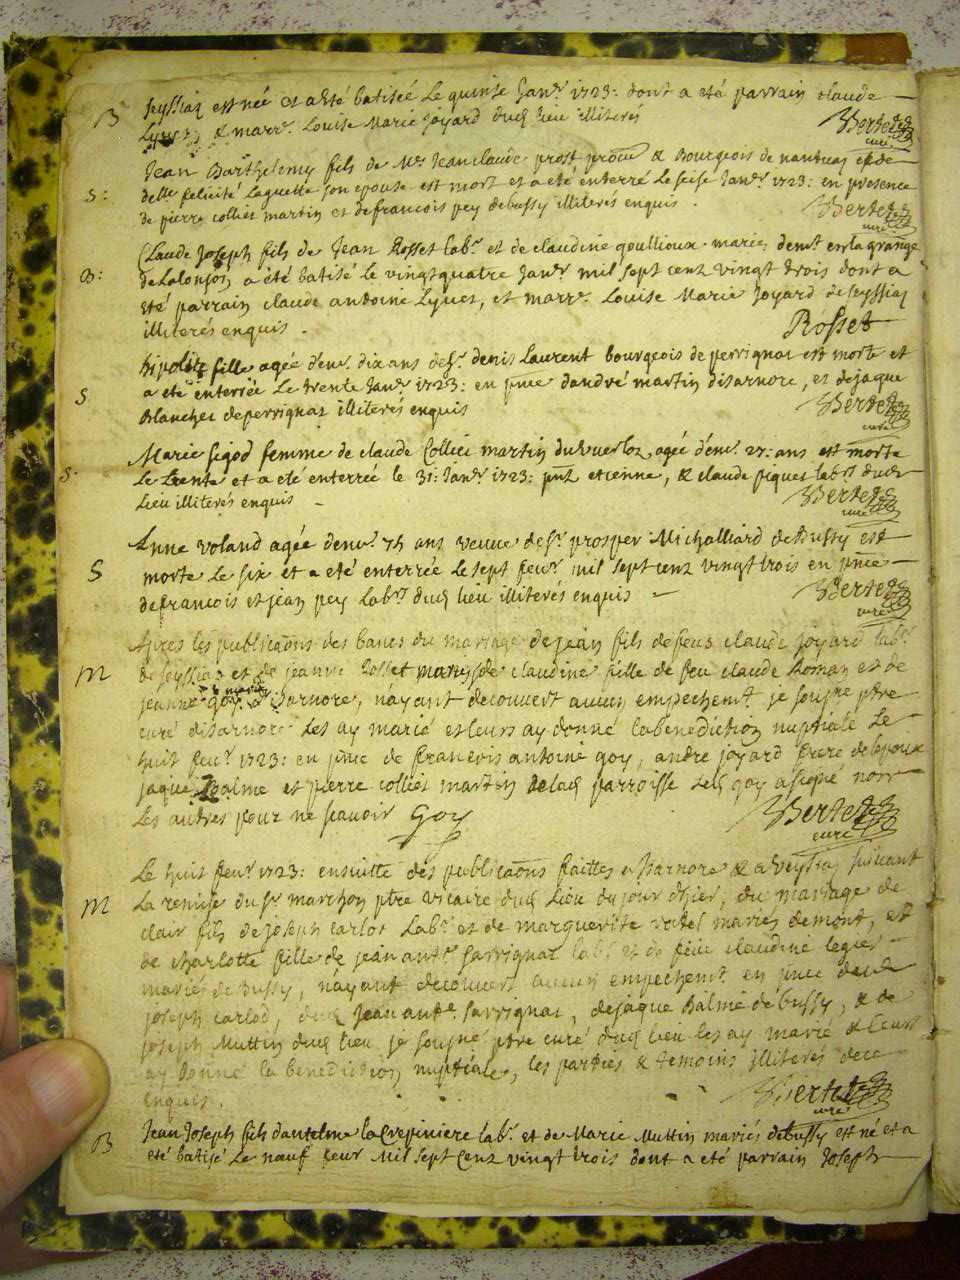 B seyssiaz est née et a eté batiséé Le quinse Janvr 1723: dont a eté parrain claude
Lyvet, & marrn. Louise Marie Joyard dud lieu illiterés Bertet
curé
Jean Barthelemy fils de Mr Jeanclaude prost, procu & Bourgeois de nantuaz et de
S: delle felicité Laguette son epouse est mort et a eté enterré Le seise Janvr 1723: en presence
de pierre colliet martin et defrancois pey debussy illiterés enquis. Bertet
curé
Claude Joseph fils de Jean Rosset labr et de claudine goullioux mariez demt en la grange
B: de Lalonson a été batisé Le vingtquatre Janvr mil sept cent vingt trois dont a
eté parrain claude antoine Lyvet, et marrn. Louise Marie Joyard de seyssiaz
illiterés enquis. Rosset
hipolite fille agée denv. dix ans de sr denis Laurent bourgeois de perrignat est morte et
S a eté enterrée Le trente Janvr 1723: en pnce dandré martin disarnore, et dejaque
Blanchet deperrignat illiterés enquis Bertet
curé
Marie sigod femme de claude Colliet martin agée d'env. 27: ans est morte
S. Le trente et a eté enterréé le 31: Janvr 1723: pnt etienne, & claude piquet labrs dud
Lieu illiterés enquis Bertet
curé
Anne voland agée denv. 75 ans veuve de sr prosper Michalliard deBussy est
S morte Le six et a eté enterréé Le sept fevr. mil sept cent vingt trois en pnce
defrancois et jean pey Labrs dud lieu illiterés enquis Bertet
curé
Apres les publicaons des bancs du mariage de jean fils de feus claude joyard labr
M de seyssiaz et de jeanne Rosset mariés & de claudine fille de feu claude Roman et de
jeanne goy mariés d'isarnore, n'ayant decouvert aucun empechemt. je soussne ptre
curé disarnore Les ay marié et leurs ay donné la benediction nuptiale Le
huit fevr. 1723: en pnce de francois antoine goy, andre joyard frere de lepoux
jaque Balme et pierre colliet martin delad parroisse led goy a signé non
Les autres pour ne scavoir Goy Bertet
curé
Le huit fevr 1723: ensuitte des publicaons faittes a Isarnore & a veyssiaz suivant
M La remise du sr marchon ptre vicaire dud Lieu du jour d'hier, du mariage de
clair fils de joseph carlot Labr et de marguerite mariés demt, et
de charlotte fille de jean antne. savrignat labr et de feue claudine
mariés de Bussy, n'ayant decouvert aucun empechemt en pnce dud
joseph carlod, dud Jean antne. savrignat, dejaque Balme de bussy, & de
joseph Muttin dud lieu je soussné ptre curé dud lieu les ay marié & leurs
ay donné la benediction nuptiale, les parties & temoins illiterés de ce
enquis. Bertet
curé
B Jean Joseph fils dantelme la Crepiniere labr. et de Marie Muttin mariés debussy est né et a
eté batisé Le neuf fevr Mil sept Cent vingt trois dont a eté parrain Joseph